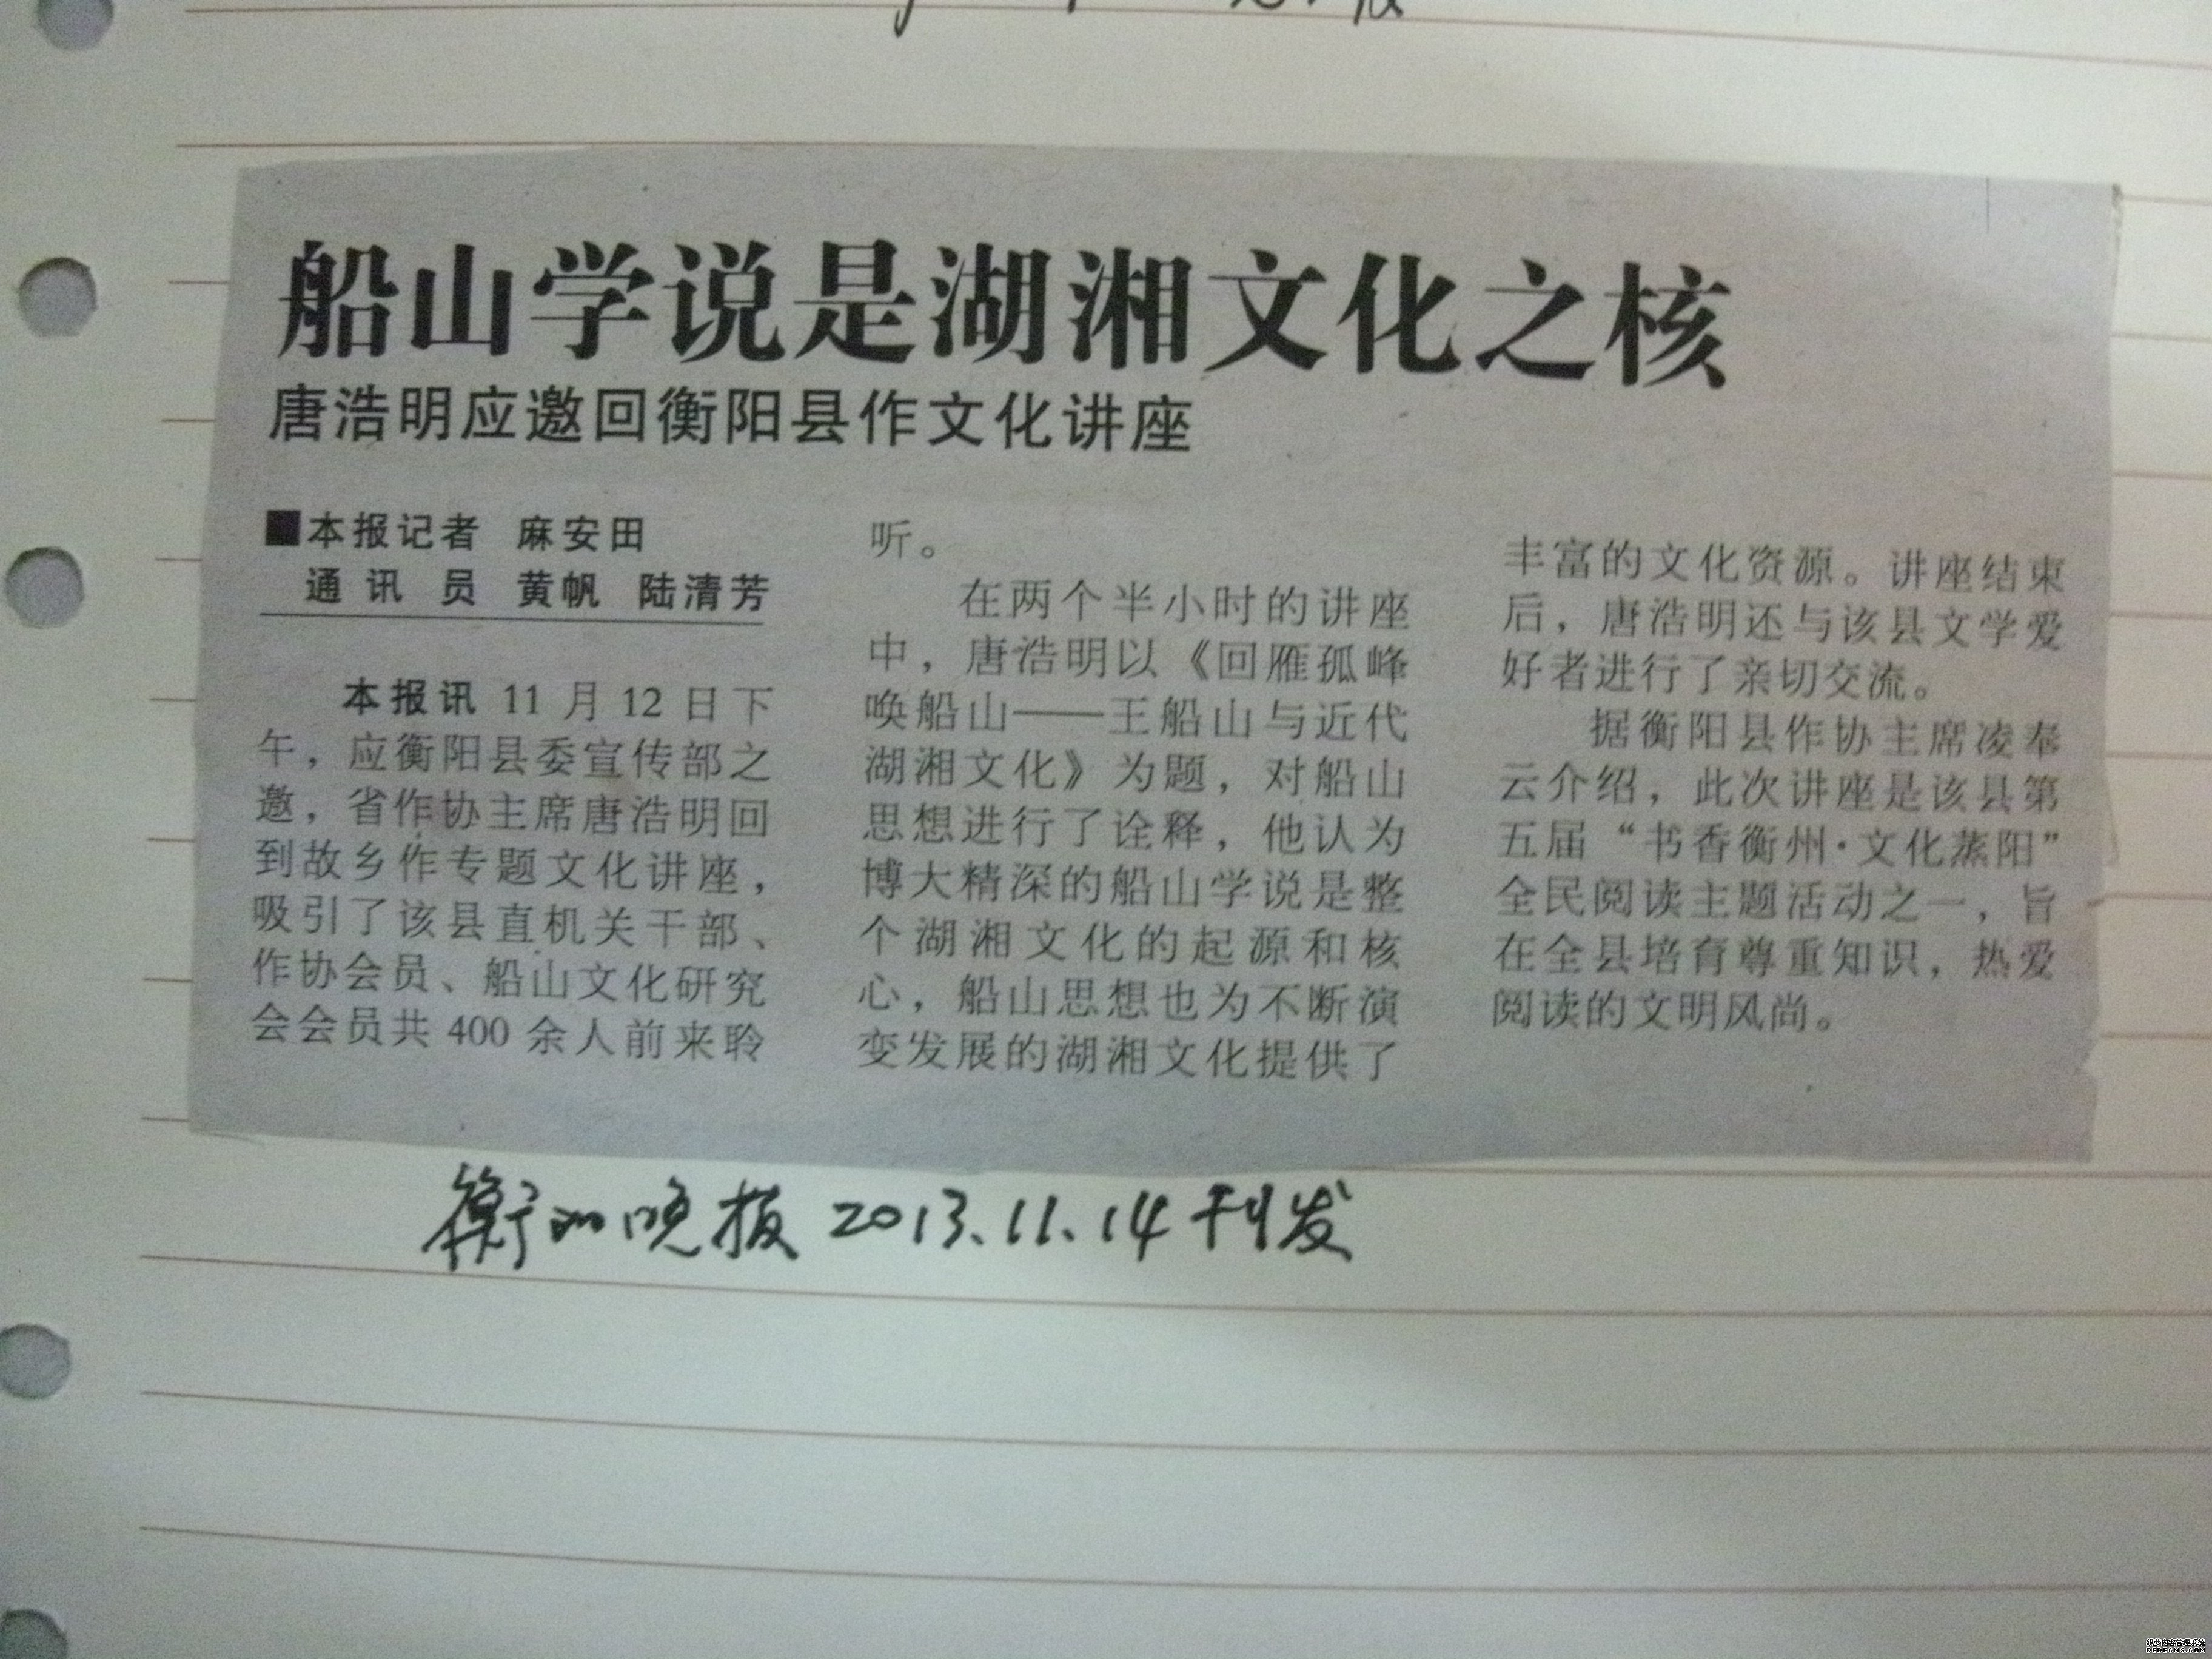 船山学说是湖湘文化之核
唐浩明应邀回衡阳县作文化讲座
■本报记者 麻安田
通 讯 员 黄帆 陆清芳
本报讯 11 月 12 日下
午，应衡阳县委宣传部之
邀，省作协主席唐浩明回
到故乡作专题文化讲座，
吸引了该县直机关干部、
作协会员、船山文化研究
会会员共 400 余人前来聆
听。
在两个半小时的讲座
中，唐浩明以《回雁孤峰
唤船山——王船山与近代
湖湘文化》为题，对船山
思想进行了诠释，他认为
博大精深的船山学说是整
个湖湘文化的起源和核
心，船山思想也为不断演
变发展的湖湘文化提供了
丰富的文化资源。讲座结束
后，唐浩明还与该县文学爱
好者进行了亲切交流。
据衡阳县作协主席凌奉
云介绍，此次讲座是该县第
五届“书香衡州·文化蒸阳”
全民阅读主题活动之一，旨
在全县培育尊重知识，热爱
阅读的文明风尚。
衡州晚报 2013.11.14 刊发
织梦内容管理系统
DEDECMS.COM